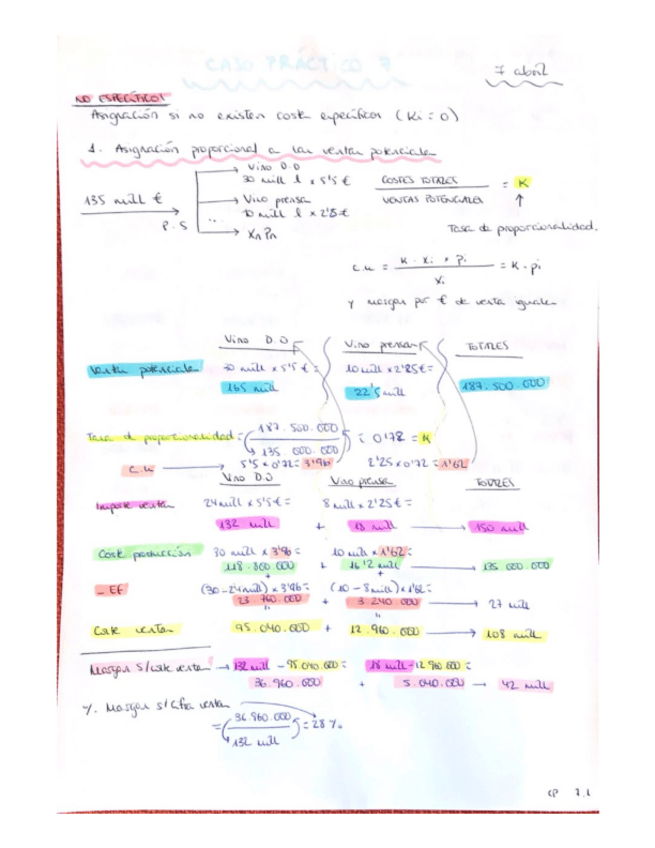 CASO PRÁCTICO 7
7 abril
NO ESPECÍFICOS
Asignación si no existen coste específicos (Ki = 0)
1. Asignación proporcional a las ventas potenciales
135 mill €
P.S
Vino D.O
30 mill l x 5'5 €
Vino prensa
10 mill x 2'25 €
...
Xn Pn
COSTES TOTALES
VENTAS POTENCIALES
= K
Tasa de proporcionalidad.
c.u = K · Xi · Pi / Xi = K · pi
y margen por € de venta iguales
Vino D.O Vino prensa TOTALES
Ventas potenciales 30 mill x 5'5 € = 10 mill x 2'25 € =
165 mill 22'5 mill 187.500.000
Tasa de proporcionalidad = 187.500.000 / 135.000.000 = 0'72 = K
c.u → 5'5 x 0'72 = 3'96 2'25 x 0'72 = 1'62
Vino D.O Vino prensa TOTALES
Importe ventas 24 mill x 5'5 € = 8 mill x 2'25 € =
132 mill + 18 mill → 150 mill
Coste producción 30 mill x 3'96 = 10 mill x 1'62 =
118.800.000 + 16'2 mill → 135.000.000
- EF (30-24 mill) x 3'96 = (10 - 8 mill) x 1'62 =
23.760.000 + 3.240.000 → 27 mill
Coste ventas 95.040.000 + 12.960.000 → 108 mill
Margen s/coste venta → 132 mill - 95.040.000 = 18 mill - 12.960.000 =
36.960.000 + 5.040.000 → 42 mill
% Margen s/cifra venta
= (36.960.000 / 132 mill) = 28 %
CP 7.1